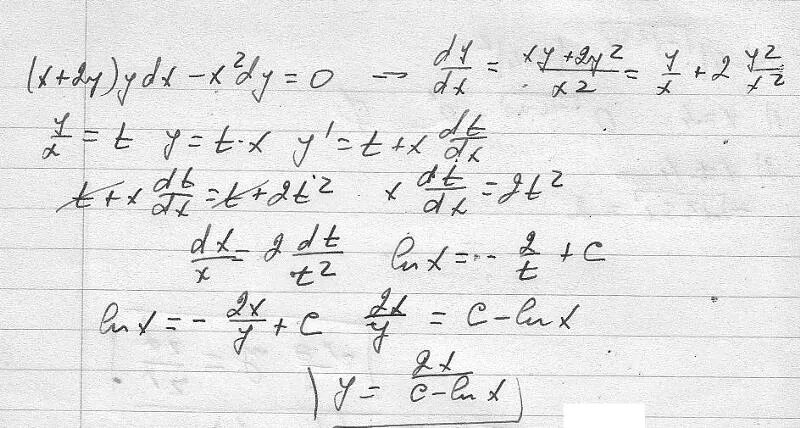 (x+2y)ydx-x²dy=0 → dy/dx = (xy+2y²)/x² = y/x + 2 y²/x²
y/x = t y=t·x y'=t+x dt/dx
t+x dt/dx = t+2t² x dt/dx = 2t²
dx/x = 2 dt/t² ln x = - 2/t + C
ln x = - 2x/y + C 2x/y = C - ln x
y = 2x/(C - ln x)